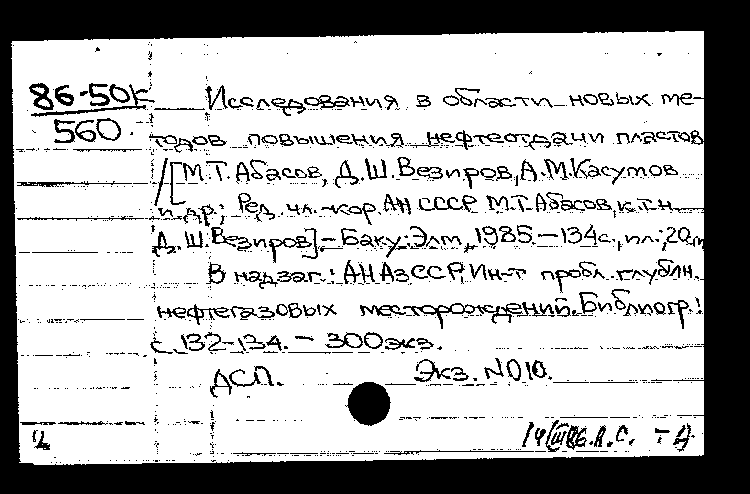 86-50к
560
Исследования в области новых ме-
тодов повышения нефтеотдачи пластов
/[М.Т.Абасов, Д.Ш.Везиров, А.М.Касумов
и др.; Ред. чл.-кор. АН СССР М.Т.Абасов, к.т.н.
Д.Ш.Везиров].- Баку: Элм, 1985.-134с., ил.; 20см
В надзаг.: АН АзССР, Ин-т пробл. глубин.
нефтегазовых месторождений. Библиогр.:
с.132-134. - 300экз.
ДСП. Экз. N010.